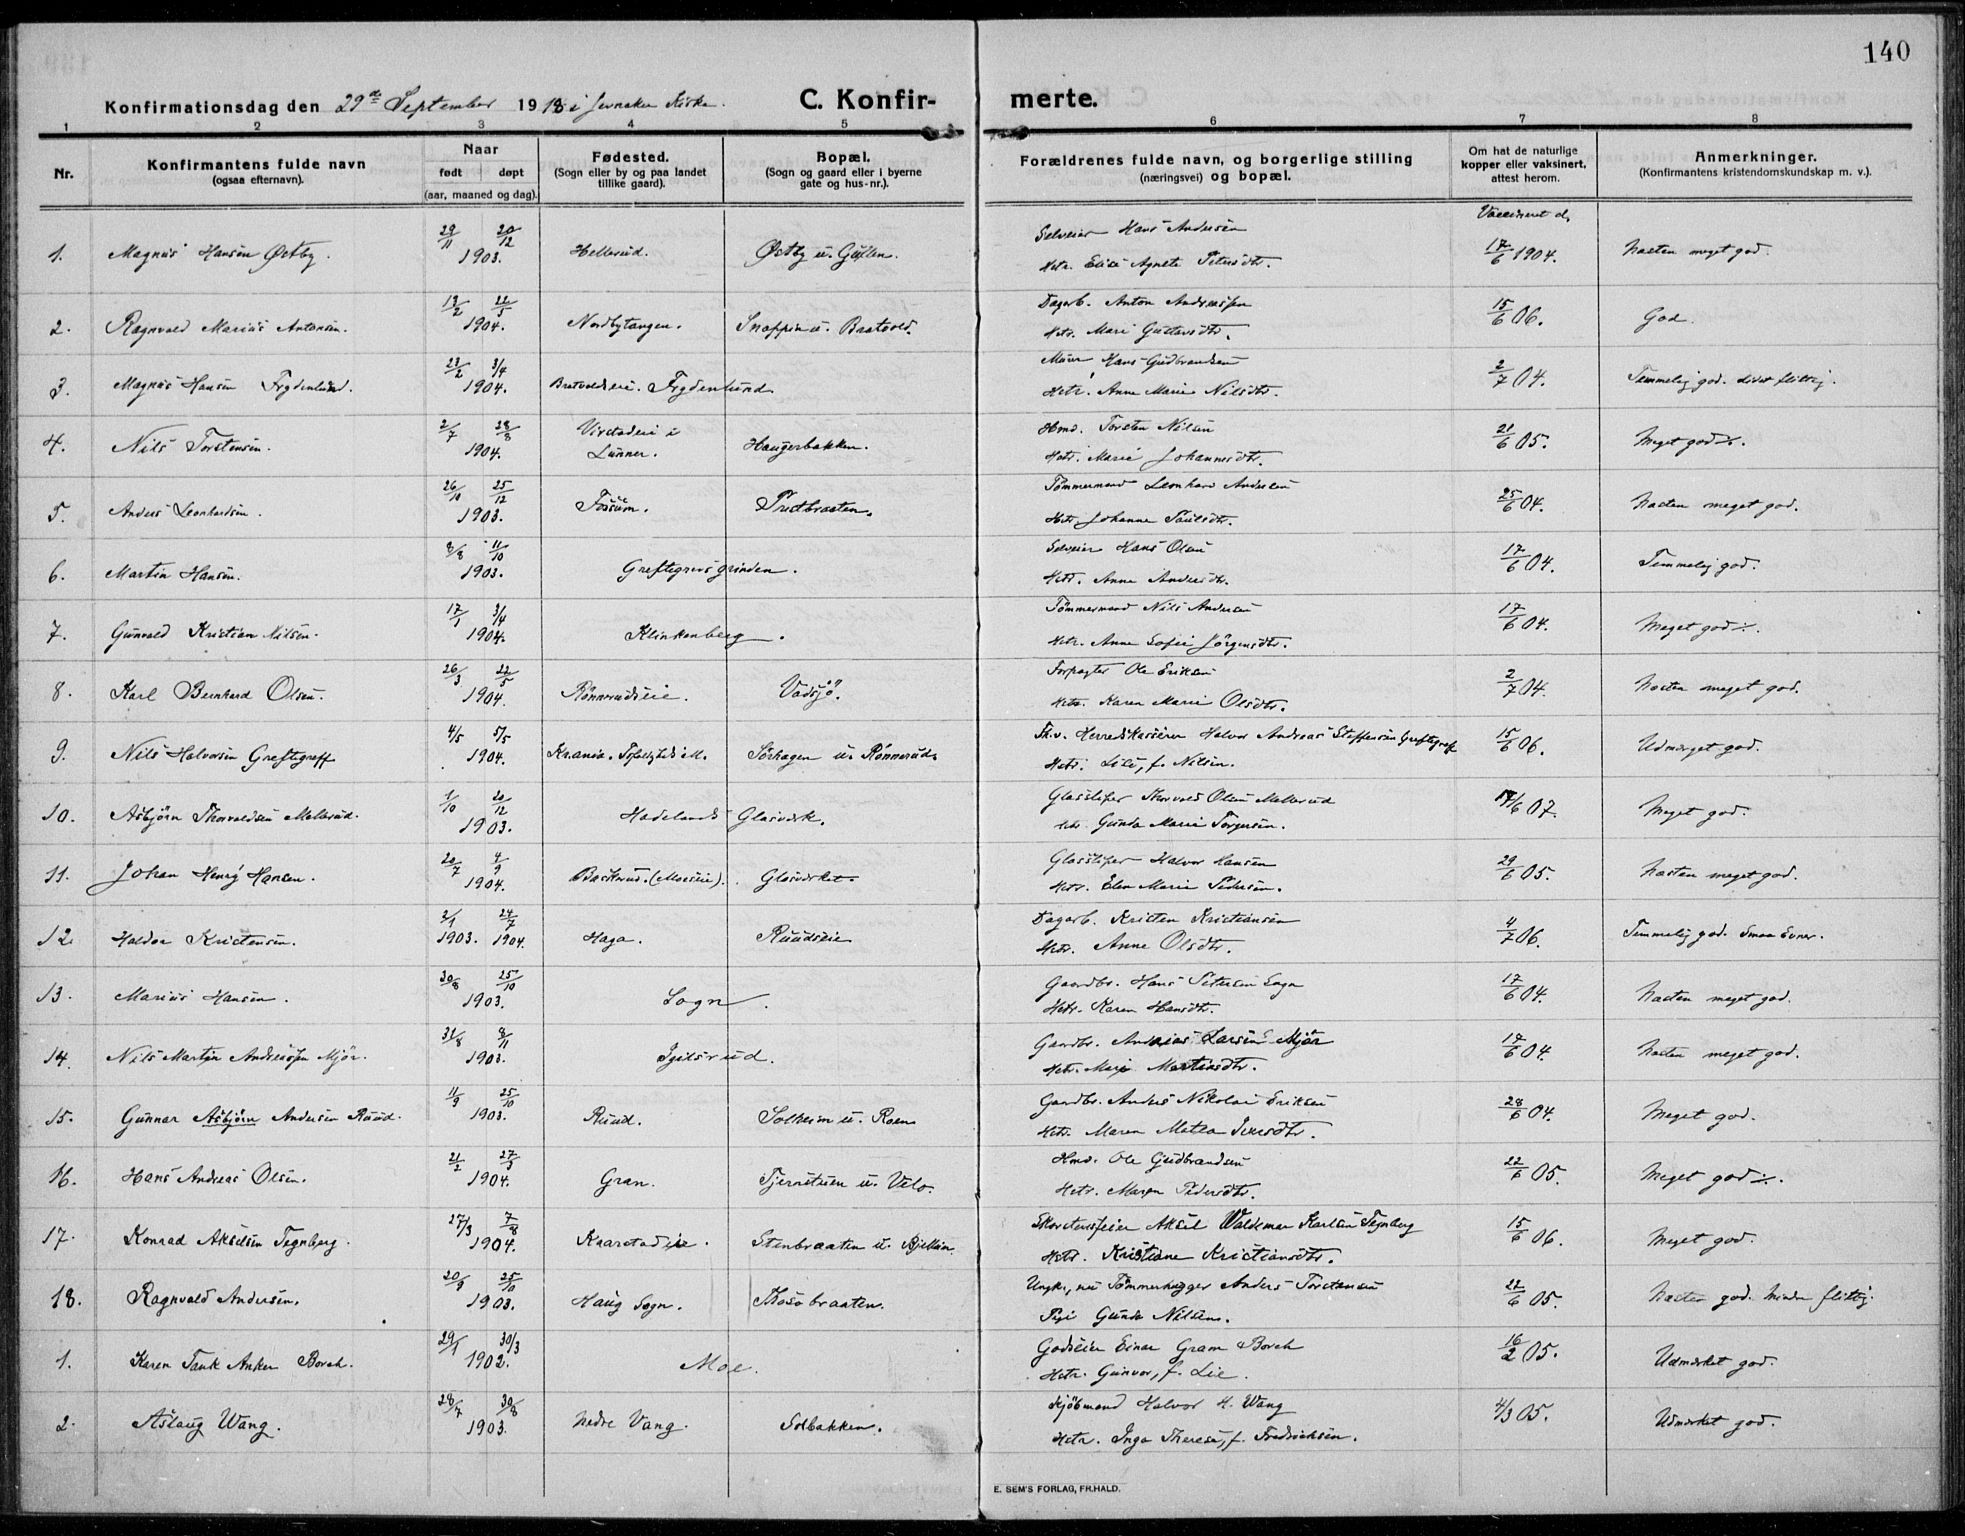 140
Konfirmationsdag den 29de September 1918 i Jevnaker Kirke. C. Konfirmerte.
1 2 3 4 5 6 7 8
Nr.
Konfirmantens fulde navn
(ogsaa efternavn).
Naar
født døpt
(aar, maaned og dag).
Fødested.
(Sogn eller by og paa landet
tillike gaard).
Bopæl.
(Sogn og gaard eller i byerne
gate og hus-nr.).
Forældrenes fulde navn, og borgerlige stilling
(næringsvei) og bopæl.
Om hat de naturlige
kopper eller vaksinert,
attest herom.
Anmerkninger.
(Konfirmantens kristendomskundskap m. v.).
Vaccineret d.
1. Magnus Hansen Østby. 29/11 20/12 1903. Hellerud. Østby u. Gullen. Selveier Hans Andersen 17/6 1904. Næsten meget god.
Hstr. Elise Agnete Petersdtr.
2. Ragnvald Marius Antonsen. 19/2 22/5 1904. Nordbytangen. Snoppen u. Bratvold. Dagarb. Anton Andreassen 15/6 06. God.
Hstr. Mari Gustavsdtr.
3. Magnus Hansen Frydenlund. 23/2 3/4 1904. Bratvoldseie. Frydenlund Murer Hans Gudbrandsen 2/7 04. Temmelig god. Lidet flittig.
Hstr. Anne Marie Nilsdtr.
4. Nils Torstensen. 2/7 28/8 1904. Virstadeie i Lunner. Haugerbakken. Hmd. Torsten Nilsen 21/6 05. Meget god ÷.
Hstr. Marie Johannesdtr.
5. Anders Leonhardsen. 26/10 25/12 1903. Fossum. Prestbraaten. Tømmermand Leonhard Andersen 25/6 04. Næsten meget god.
Hstr. Johanne Paulsdtr.
6. Martin Hansen. 8/8 11/10 1903. Greftegrevsgrinden. Selveier Hans Olsen 17/6 04. Temmelig god.
Hstr. Anne Andersdtr.
7. Gunvald Kristian Nilsen. 17/1 3/4 1904. Klinkenberg. Tømmermand Nils Andersen 17/6 04. Meget god ÷.
Hstr. Anne Sofie Jörgensdtr.
8. Karl Bernhard Olsen. 26/3 22/5 1904. Rønnerudseie. Vadsjø. Forpagter Ole Eriksen 2/7 04. Næsten meget god.
Hstr. Karen Marie Olsdtr.
9. Nils Halvorsen Greftegreff 4/5 5/5 1904. Krania. Tørhagen u. Rønnerud. Fh.v. Herredskasserer Halvor Andreas Steffensen Greftegreff 15/6 06. Udmerket god.
Hstr. Lise, f. Nilsen.
10. Asbjörn Thorvaldsen Mellerud. 1/10 20/12 1903. Hadelands Glasværk. Glassliper Thorvald Olsen Mellerud 17/6 07. Meget god.
Hstr. Gunda Marie Torgersen.
11. Johan Henry Hansen. 20/7 4/9 1904. Bakkerud. (Moeseie). Glasværket. Glassliper Halvor Hansen 29/6 05. Næsten meget god.
Hstr. Elen Marie Pedersen.
12. Haldor Kristensen. 2/1 1903. 24/7 1904. Haga. Ruudseie Dagarb. Kristen Kristiansen 4/7 06. Temmelig god. Smaa Evner.
Hstr. Anne Olsdtr.
13. Marius Hansen. 30/8 25/10 1903. Sogn. Gaardbr. Hans Petersen Sogn 17/6 04. Næsten meget god.
Hstr. Karen Hansdtr.
14. Nils Martin Andreassen Mjør. 31/8 8/11 1903. Igilsrud. Gaardbr. Andreas Larsen Mjør 17/6 04. Næsten meget god.
Hstr. Mari Martinsdtr.
15. Gunnar Asbjørn Andersen Ruud. 11/9 25/10 1903. Ruud. Solheim u. Roen Gaardbr. Anders Nikolai Eriksen 28/6 04. Meget god.
Hstr. Maren Matea Iversdtr.
16. Hans Andreas Olsen. 21/2 27/3 1904. Gran. Tjernstuen u. Velo. Hmd. Ole Gudbrandsen 22/6 05. Meget god ÷.
Hstr. Maren Pedersdtr.
17. Konrad Akselsen Tegnberg. 27/3 7/8 1904. Kaarstadeie. Stenbraaten u. Bjellum Skorstensfeier Aksel Waldemar Karlsen Tegnberg 15/6 06. Meget god.
Hstr. Kristiane Kristiansdtr.
18. Ragnvald Andersen. 20/9 25/10 1903. Haug Sogn. Mosobraaten. Ungkr, nu Tømmerhugger Anders Torstensen 22/6 05. Næsten god. Mindre flittig.
Pige Gunda Nilsen.
1. Karen Tank Anker Borch. 29/1 30/3 1902. Moe. Godseier Einar Gram Borch 16/2 05. Udmerket god.
Hstr. Gunvor, f. Lie.
2. Aslaug Wang. 28/7 30/8 1903. Nedre Vang. Solbakken. Kjöbmand Halvor H. Wang 4/3 05. Udmerket god.
Hstr. Inga Therese, f. Fredriksen.
E. SEM'S FORLAG, FR.HALD.